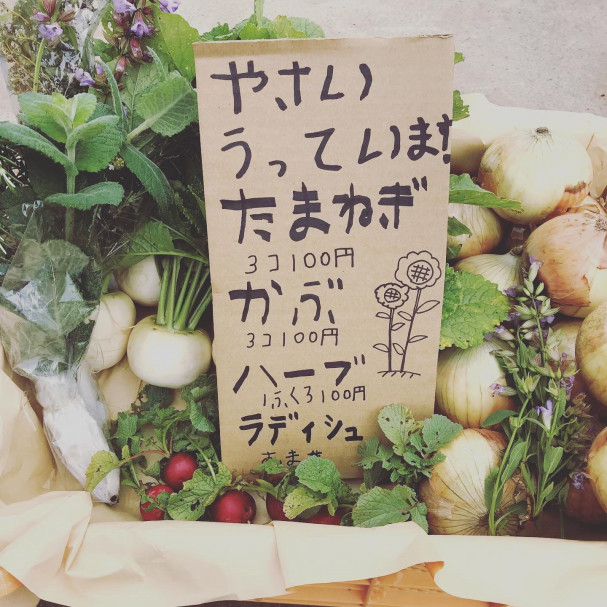 やさい
うっています
たまねぎ
3コ100円
かぶ
3コ100円
ハーブ
1ふくろ100円
ラディシュ